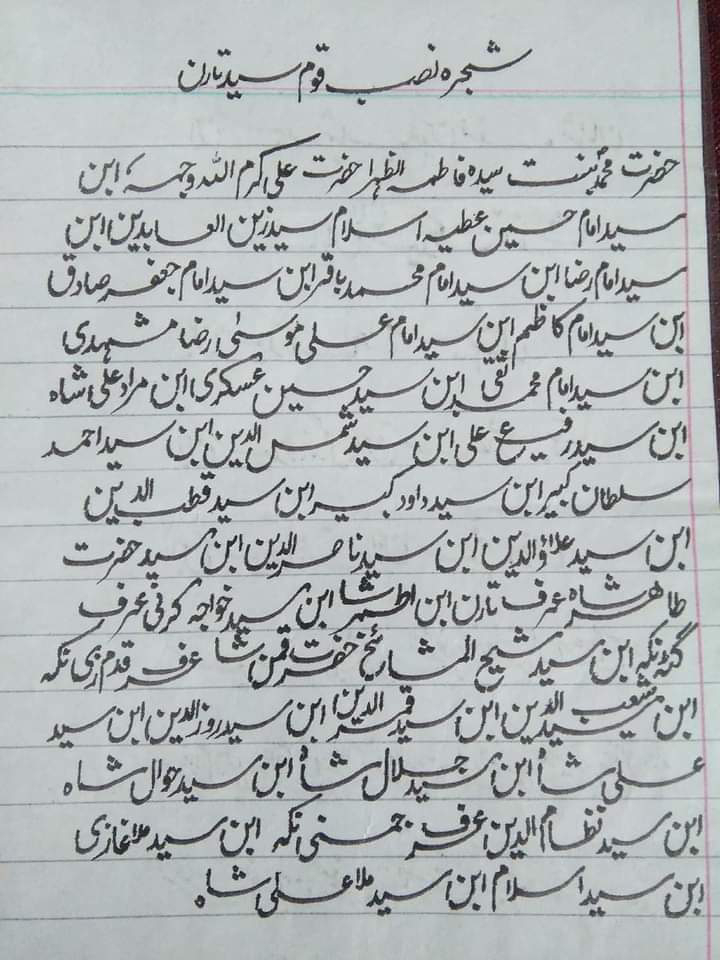 شجرہ نصب قوم سید تارن
حضرت محمدؐ بنت سیدہ فاطمہ الظہرا حضرت علی کرم اللہ وجہہ، ابن
سید امام حسین عطیہ اسلام سید زین العابدین ابن
سید امام رضا ابن سید امام محمد باقر ابن سید امام جعفر صادق
ابن سید امام کاظم ابن سید امام علی موسیٰ رضا مشہدی
ابن سید امام محمد تقی ابن سید حسین عسکری ابن مراد علی شاہ
ابن سید رفیع علی ابن سید شمس الدین ابن سید احمد
سلطان کبیر ابن سید داود کبیر ابن سید قطب الدین
ابن سید علاؤالدین ابن سید ناصر الدین ابن سید حضرت
طاہر شاہ عرف تارن ابن اطہر شا ابن سید خواجہ کرنی عرف
ابن سید شیح المشائخ حضرت شا عرف قدم زی نکہ
ابن سید الدین ابن سید قمر الدین ابن سید روزالدین ابن سید
علی شاہ ابن سید جلال شاہ ابن سید حوال شاہ
ابن سید نظام الدین عرف جمنی انکہ ابن سید ملا غازی
ابن سید اسلام ابن سید ملا علی شاہ